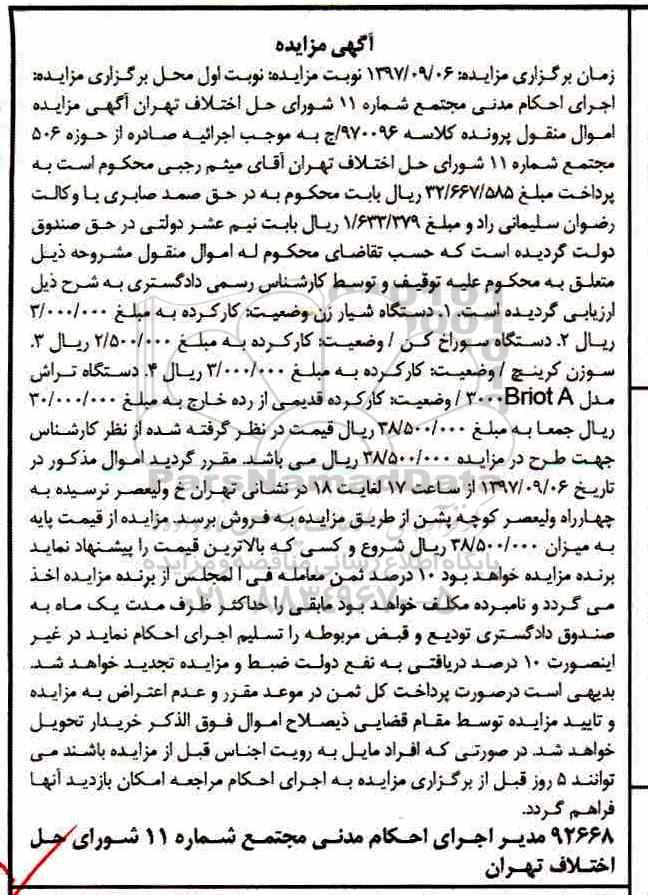 آگهی مزایده
زمان برگزاری مزایده: ۱۳۹۷/۰۹/۰۶ نوبت مزایده: نوبت اول محل برگزاری مزایده:
اجرای احکام مدنی مجتمع شماره ۱۱ شورای حل اختلاف تهران آگهی مزایده
اموال منقول پرونده کلاسه ۹۷۰۰۹۶/ج به موجب اجرائیه صادره از حوزه ۵۰۶
مجتمع شماره ۱۱ شورای حل اختلاف تهران آقای میثم رجبی محکوم است به
پرداخت مبلغ ۳۲/۶۶۷/۵۸۵ ریال بابت محکوم به در حق صمد صابری با وکالت
رضوان سلیمانی راد و مبلغ ۱/۶۳۳/۳۷۹ ریال بابت نیم عشر دولتی در حق صندوق
دولت گردیده است که حسب تقاضای محکوم له اموال منقول مشروحه ذیل
متعلق به محکوم علیه توقیف و توسط کارشناس رسمی دادگستری به شرح ذیل
ارزیابی گردیده است. ۱. دستگاه شیار زن وضعیت: کارکرده به مبلغ ۳/۰۰۰/۰۰۰
ریال ۲. دستگاه سوراخ کن / وضعیت: کارکرده به مبلغ ۲/۵۰۰/۰۰۰ ریال ۳.
سوزن کرینچ / وضعیت: کارکرده به مبلغ ۳/۰۰۰/۰۰۰ ریال ۴. دستگاه تراش
مدل Briot A۳۰۰۰ / وضعیت: کارکرده قدیمی از رده خارج به مبلغ ۳۰/۰۰۰/۰۰۰
ریال جمعا به مبلغ ۳۸/۵۰۰/۰۰۰ ریال قیمت در نظر گرفته شده از نظر کارشناس
جهت طرح در مزایده ۳۸/۵۰۰/۰۰۰ ریال می باشد. مقرر گردید اموال مذکور در
تاریخ ۱۳۹۷/۰۹/۰۶ از ساعت ۱۷ لغایت ۱۸ در نشانی تهران خ ولیعصر نرسیده به
چهارراه ولیعصر کوچه پشن از طریق مزایده به فروش برسد. مزایده از قیمت پایه
به میزان ۳۸/۵۰۰/۰۰۰ ریال شروع و کسی که بالاترین قیمت را پیشنهاد نماید
برنده مزایده خواهد بود ۱۰ درصد ثمن معامله فی المجلس از برنده مزایده اخذ
می گردد و نامبرده مکلف خواهد بود مابقی را حداکثر ظرف مدت یک ماه به
صندوق دادگستری تودیع و قبض مربوطه را تسلیم اجرای احکام نماید در غیر
اینصورت ۱۰ درصد دریافتی به نفع دولت ضبط و مزایده تجدید خواهد شد.
بدیهی است درصورت پرداخت کل ثمن در موعد مقرر و عدم اعتراض به مزایده
و تایید مزایده توسط مقام قضایی ذیصلاح اموال فوق الذکر خریدار تحویل
خواهد شد. در صورتی که افراد مایل به رویت اجناس قبل از مزایده باشند می
توانند ۵ روز قبل از برگزاری مزایده به اجرای احکام مراجعه امکان بازدید آنها
فراهم گردد.
۹۲۶۶۸ مدیر اجرای احکام مدنی مجتمع شماره ۱۱ شورای حل
اختلاف تهران
ParsNamadData
پایگاه اطلاع رسانی مناقصه و مزایده